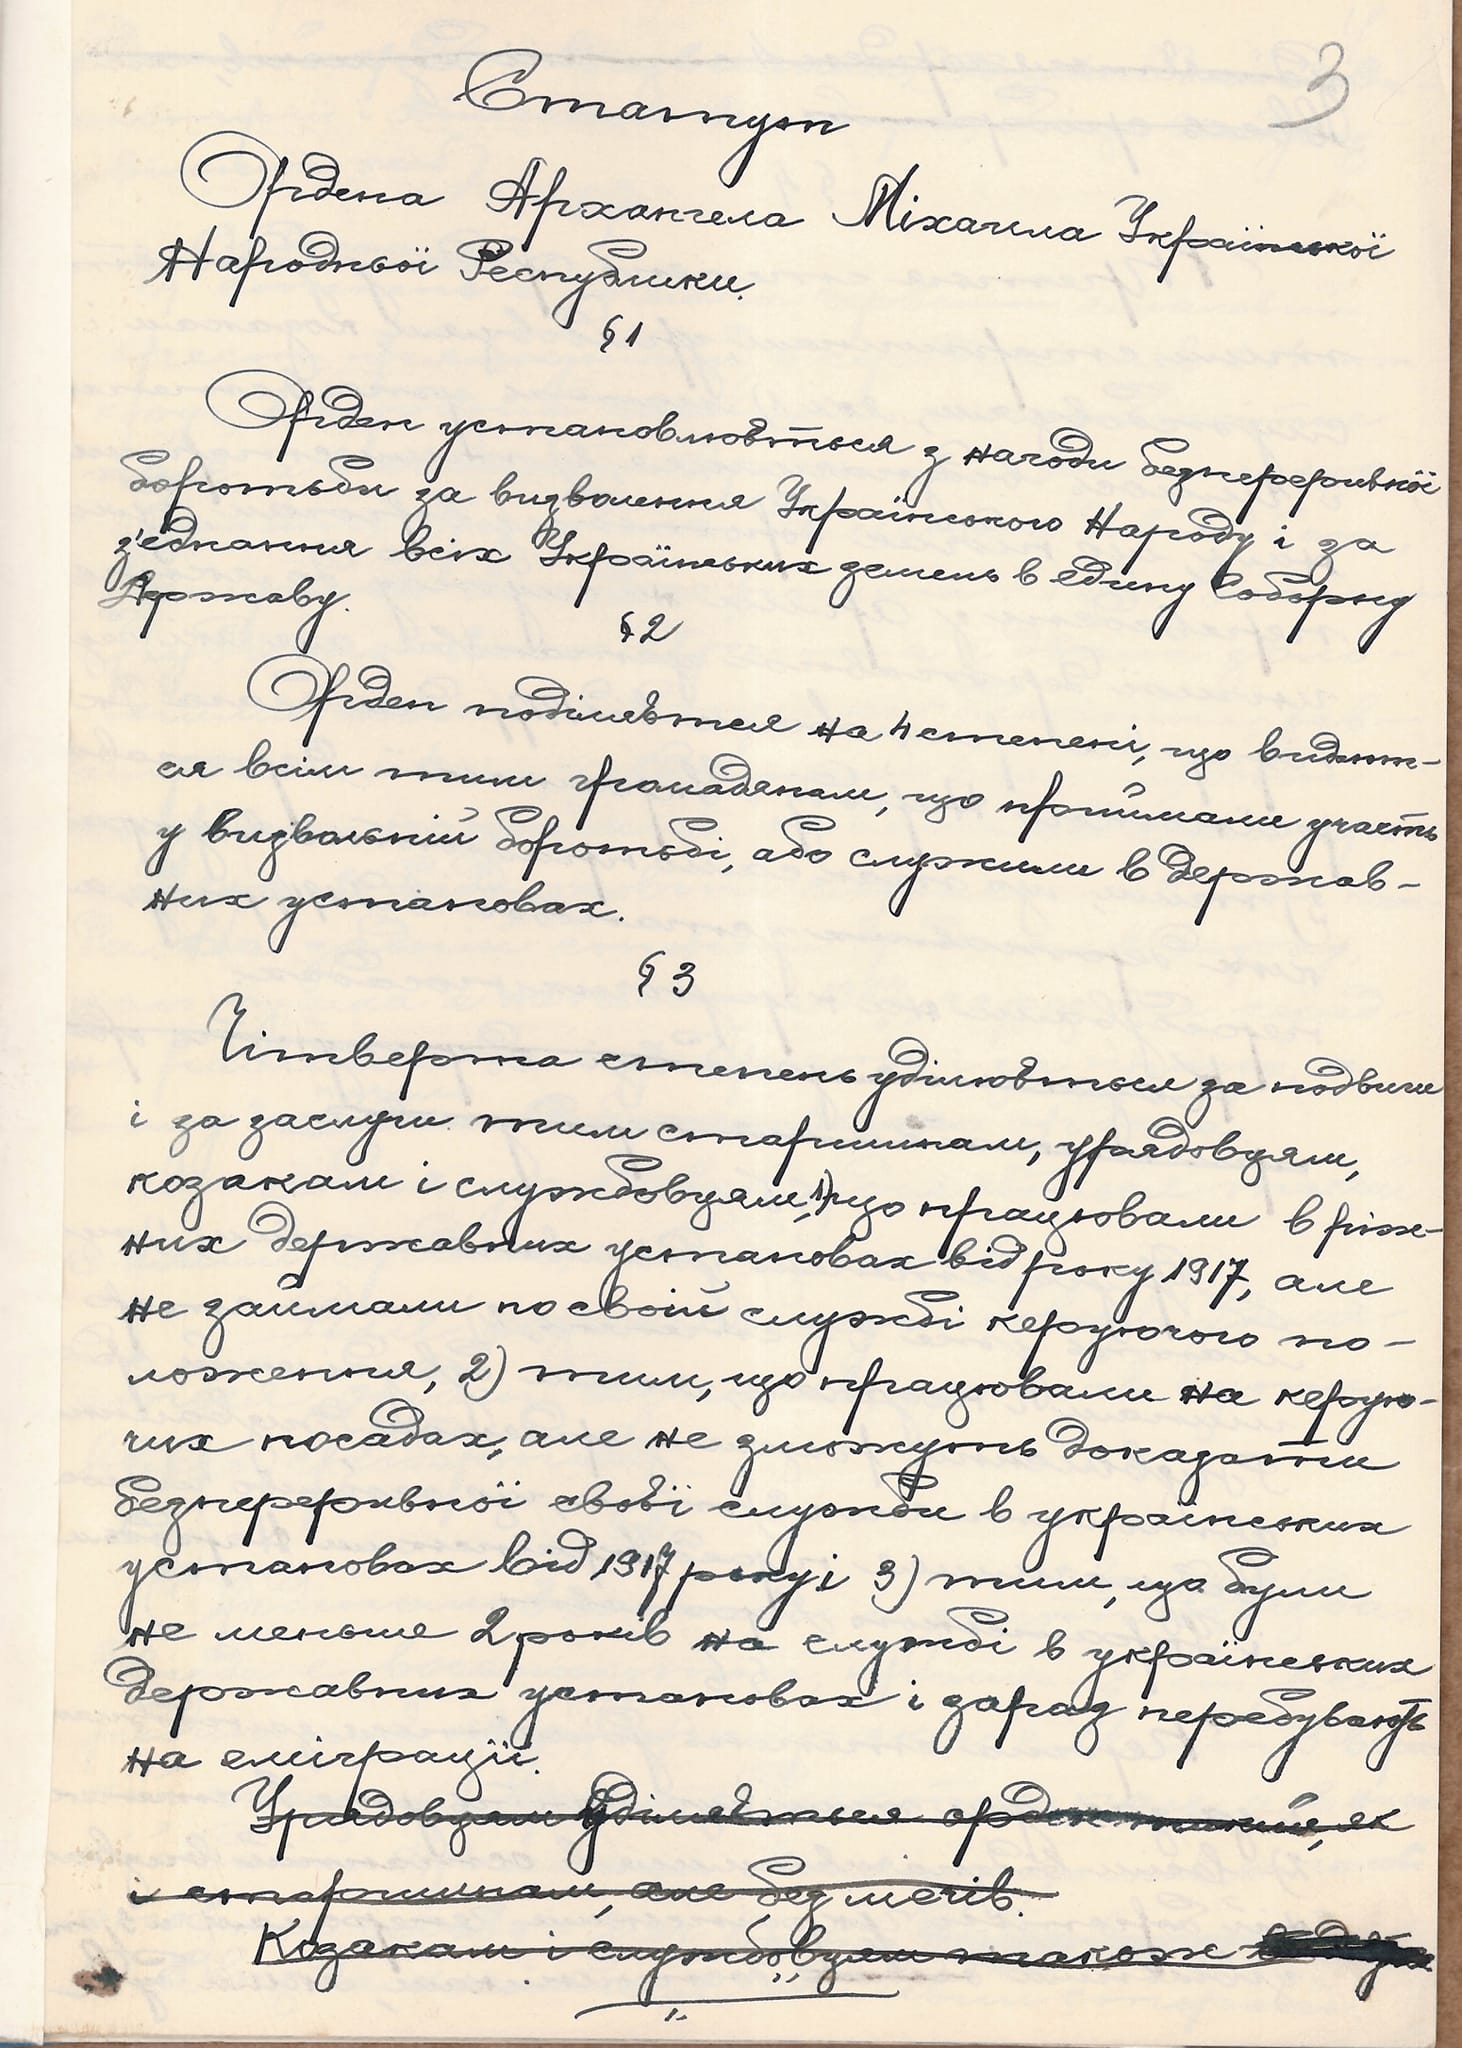 3
Статут
Ордена Архангела Міхаила Української
Народньої Республики.
§ 1
Орден установлюється з нагоди безперерривної
боротьби за визволення Українського Народу і за
з'єднання всіх Українських земель в єдину Соборну
Державу.
§ 2
Орден поділяється на 4 степені, що видают-
ся всім тим громадянам, що приймали участь
у визвольній боротьбі, або служили в держав-
них установах.
§ 3
Четверта степень уділюється за подвиги
і за заслуги тим старшинам, урядовцям,
козакам і службовцям, 1) що працювали в ріж-
них державних установах від року 1917, але
не займали по своїй службі керуючого по-
ложення, 2) тим, що працювали на керую-
чих посадах, але не зможуть доказати
безперерривної своєї служби в українських
установах від 1917 року і 3) тим, що були
не меньше 2 років на службі в українських
державних установах і зараз перебувають
на еміграції.
Урядовцям уділяється орден такий, як
і старшинам, але без мечів.
Козакам і службовцям також